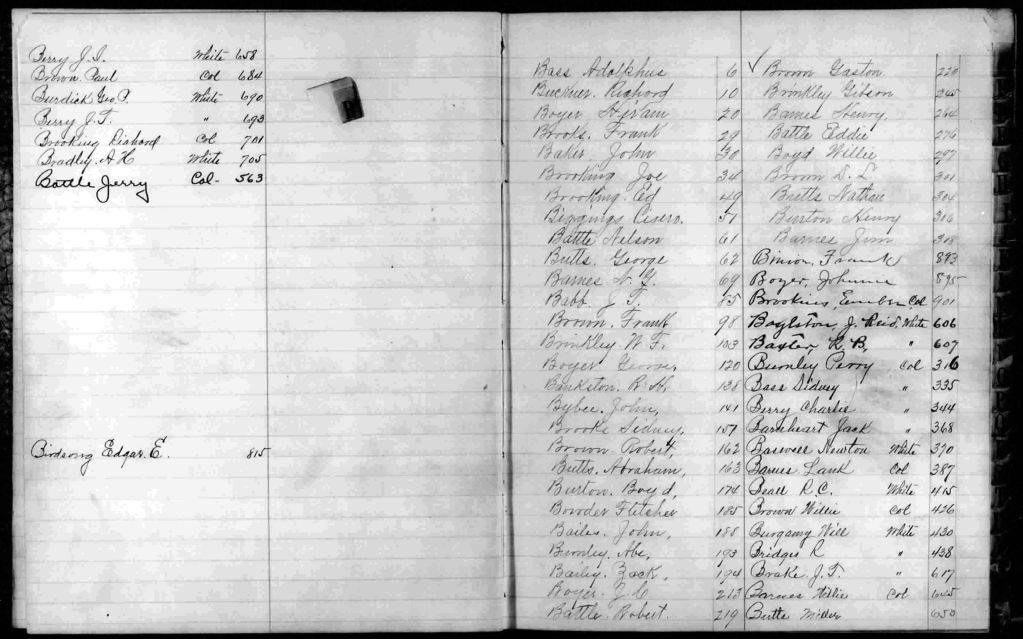 Berry J. I. White 658
Brown Paul Col 684
Burdick Geo. P. White 690
Berry J. T. " 693
Brooking Richard Col 701
Bradley A K White 705
Battle Jerry Col- 563
Birdsong Edgar. E. 815
Bass Adolphus 6
Buckner. Richard 10
Boyer Hiram 20
Brooks. Frank 29
Baker John 30
Brooking Joe 34
Brooking. Ed 49
Cicero. 51
Battle Nelson 61
Butts. George 62
Barnes 69
Babb J. T. 75
Brown. Frank 98
Brinkley W. F. 103
Boyer George 120
Bankston. R. H. 138
Bybee. John, 141
Brooks Sidney, 157
Brown Robert, 162
Butts. Abraham, 163
Burton. Boyd, 174
Bowder Fletcher 185
Bailes. John, 188
Burnley. Abe, 193
Bailey. Zack, 194
Boyer. J. C 213
Battle Robert. 219
✓ Brown Gaston 220
Brinkley Gibson 245
Barnes Henry. 264
Battle Eddie 276
Boyd Willie 297
Brown D. L. 301
Butts Nathan 304
Burton Henry 306
Barnes Jim 308
Frank 893
Boyer, Johnnie 895
Brookins, Col 901
Boylston, J. Reid. White 606
Baxter, R. B, " 607
Burnley Perry Col 316
Bass Sidney " 335
Berry Charlie " 344
Barnheart Jack " 368
Baswell Newton White 370
Barnes Lank Col 387
Beall R C. White 415
Brown Willie Col 426
Burgamy Will White 430
Bridges R " 438
Brake J. T. " 617
Barnes Willie Col 645
Butts 650